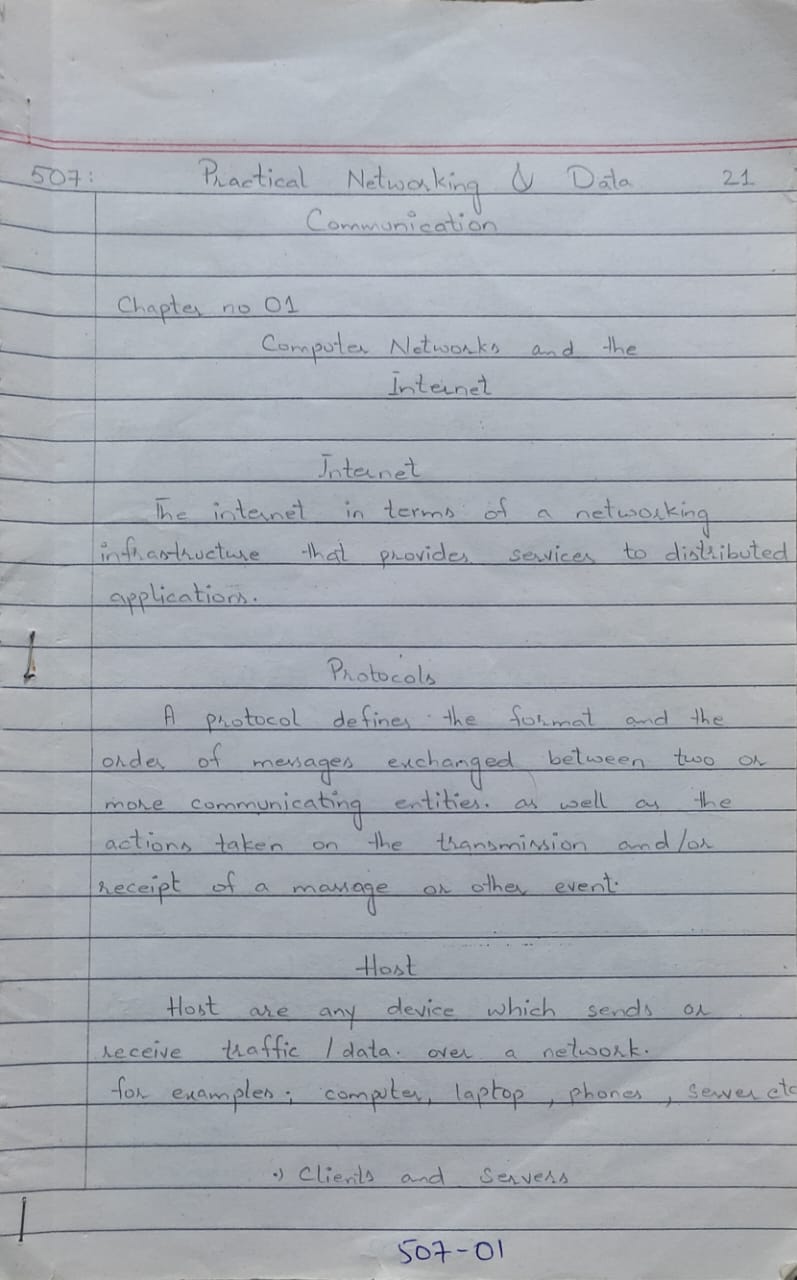 507: Practical Networking & Data 21
Communication
Chapter no 01
Computer Networks and the
Internet
Internet
The internet in terms of a networking
infrastructure that provides services to distributed
applications.
Protocols
A protocol defines the format and the
order of messages exchanged between two or
more communicating entities. as well as the
actions taken on the transmission and/or
receipt of a massage or other event.
Host
Host are any device which sends or
receive traffic / data. over a network.
for examples; computer, laptop, phones, server etc
•) Clients and Servers
507-01